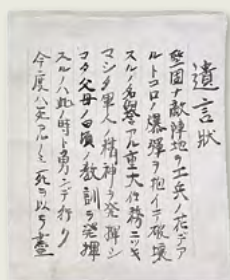 遺言狀
堅固ナ敵陣地ヲ工兵ノ花デア
ルトコロノ爆彈ヲ抱イテ破壊
スルノ名譽アル重大任務ニツキ
マシタ軍人ノ精神ヲ発揮シ
マタ父母ノ日頃ノ教訓ヲ発揮
スルノハ此ノ時ト勇ンデ行ク
今度ハ死アルノミ死ヲ以テ盡